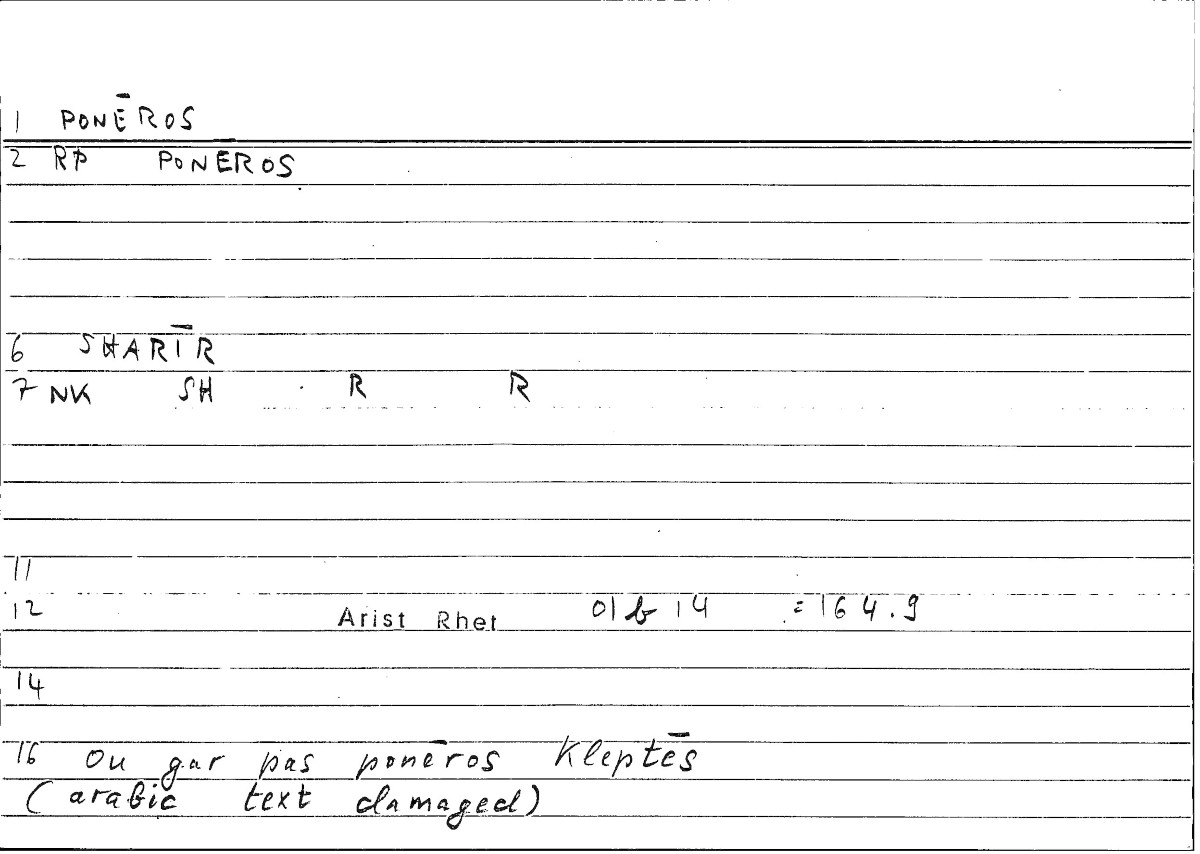 1 PONĒROS
2 RP PONEROS
6 SHARĪR
7 NK SH R R
11
12 Arist Rhet 01b14 =164.9
14
16 Ou gar pas ponēros Kleptēs
(arabic text damaged)